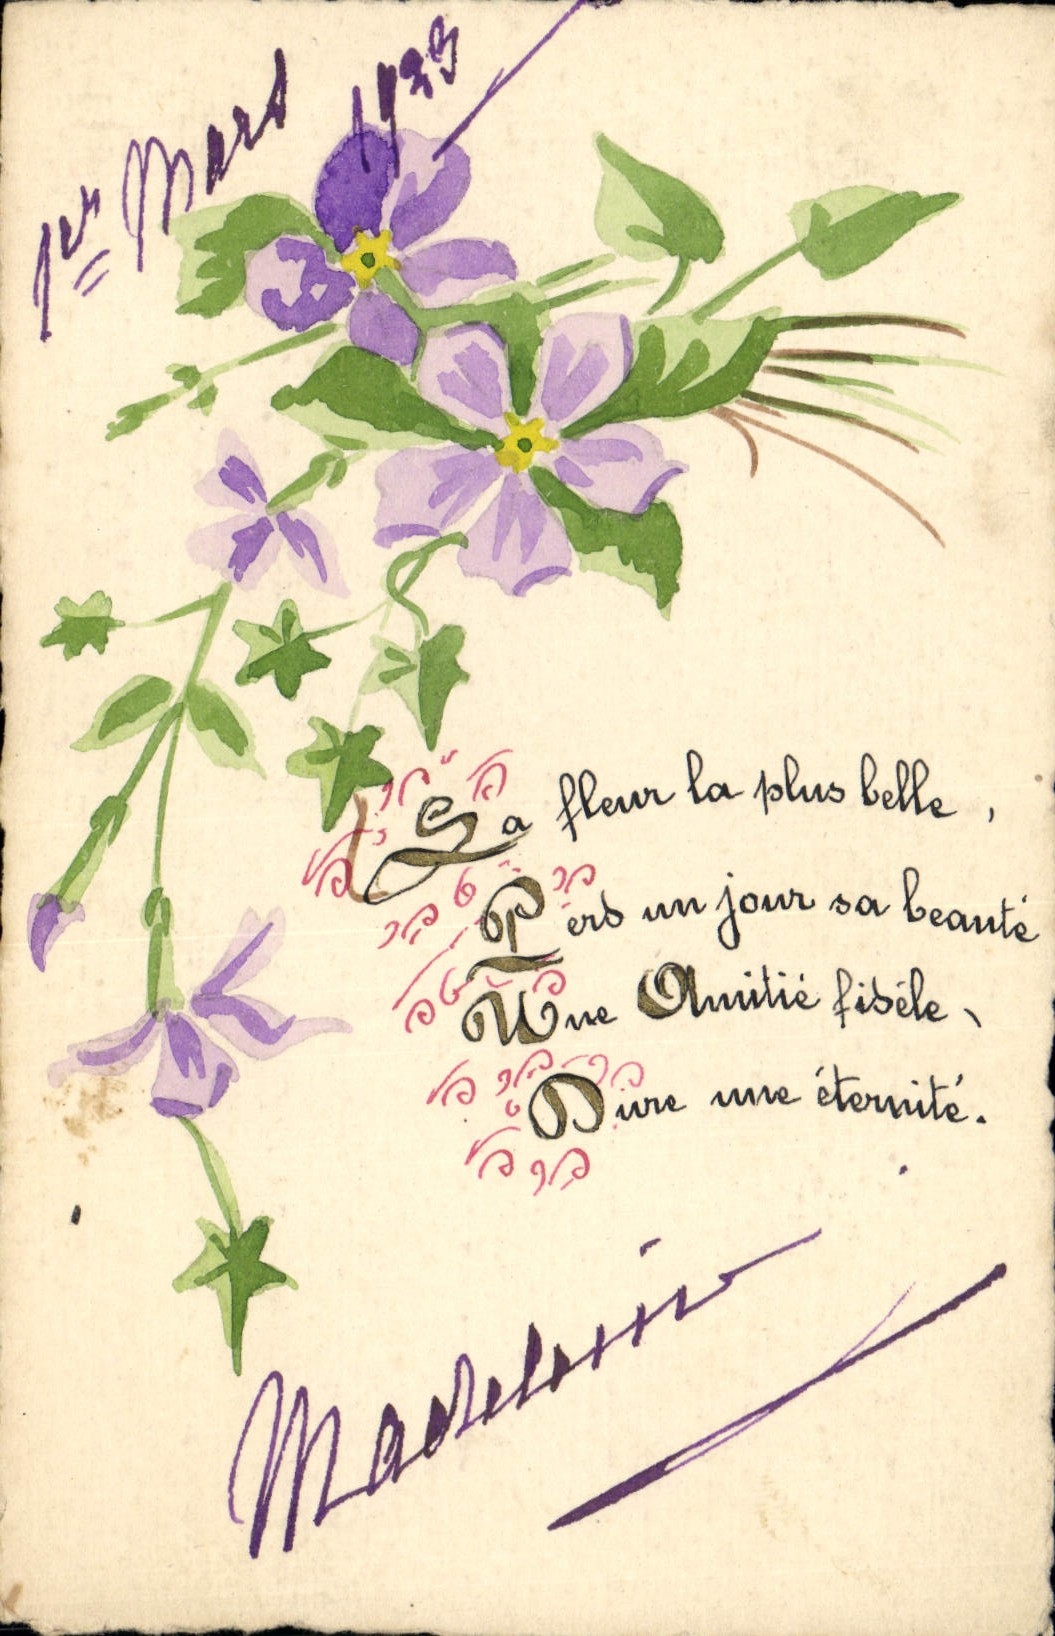 1er Mars 1933
La fleur la plus belle,
Pers un jour sa beauté
Une Amitié fidéle,
Dure une éternité.
Madeleine